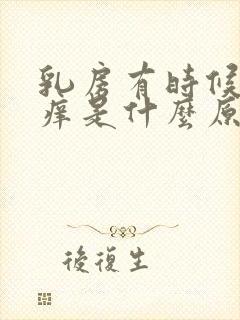 乳房有時候
痒是什麼原
後復生